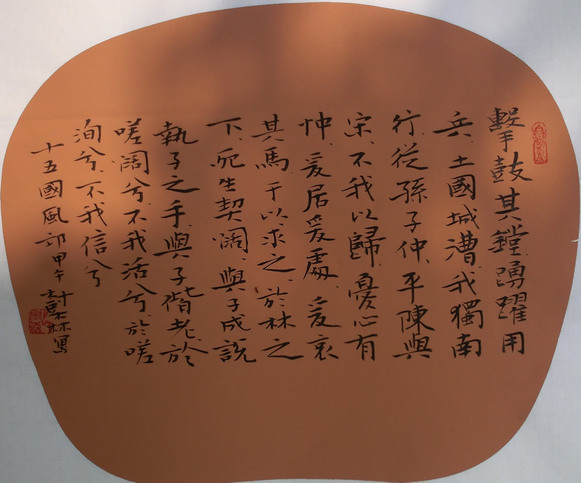 擊鼓其鏜踴躍用
兵土國城漕我獨南
行從孫子仲平陳與
宋不我以歸憂心有
忡爰居爰處爰喪
其馬于以求之於林之
下死生契闊與子成說
執子之手與子偕老於
嗟闊兮不我活兮於嗟
洵兮不我信兮
十五國風邶甲午林寫